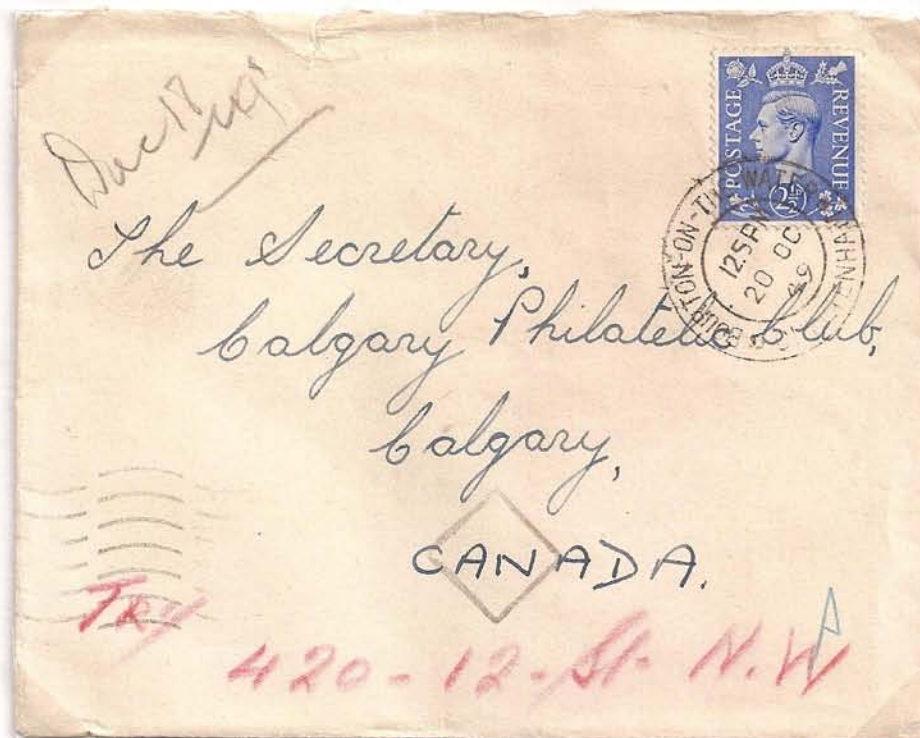 POSTAGE
REVENUE
2½D
BOURTON-ON-THE-WATER
12.5PM
20 OC
49
The Secretary,
Calgary Philatelic Club,
Calgary,
CANADA.
Try
420-12-St- N.W